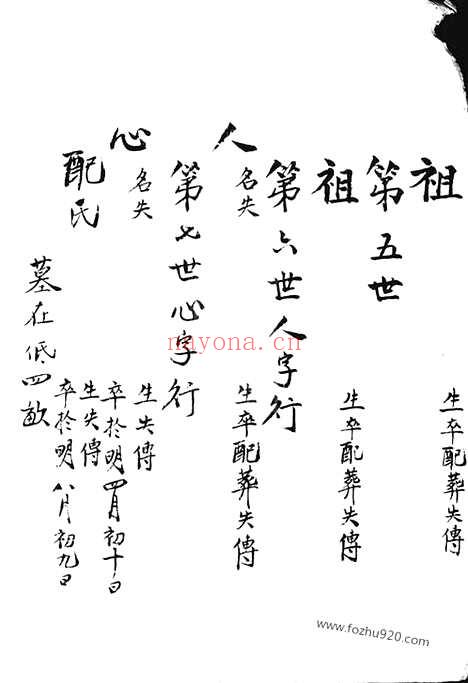 祖 生卒配葬失傳
第五世
祖 生卒配葬失傳
第六世人字行
人 名失 生卒配葬失傳
第七世心字行
心 名失 生失傳
卒於明四月初十日
配氏 生失傳
卒於明八月初九日
墓在低四畝
nayona.cn
www.fozhu920.com